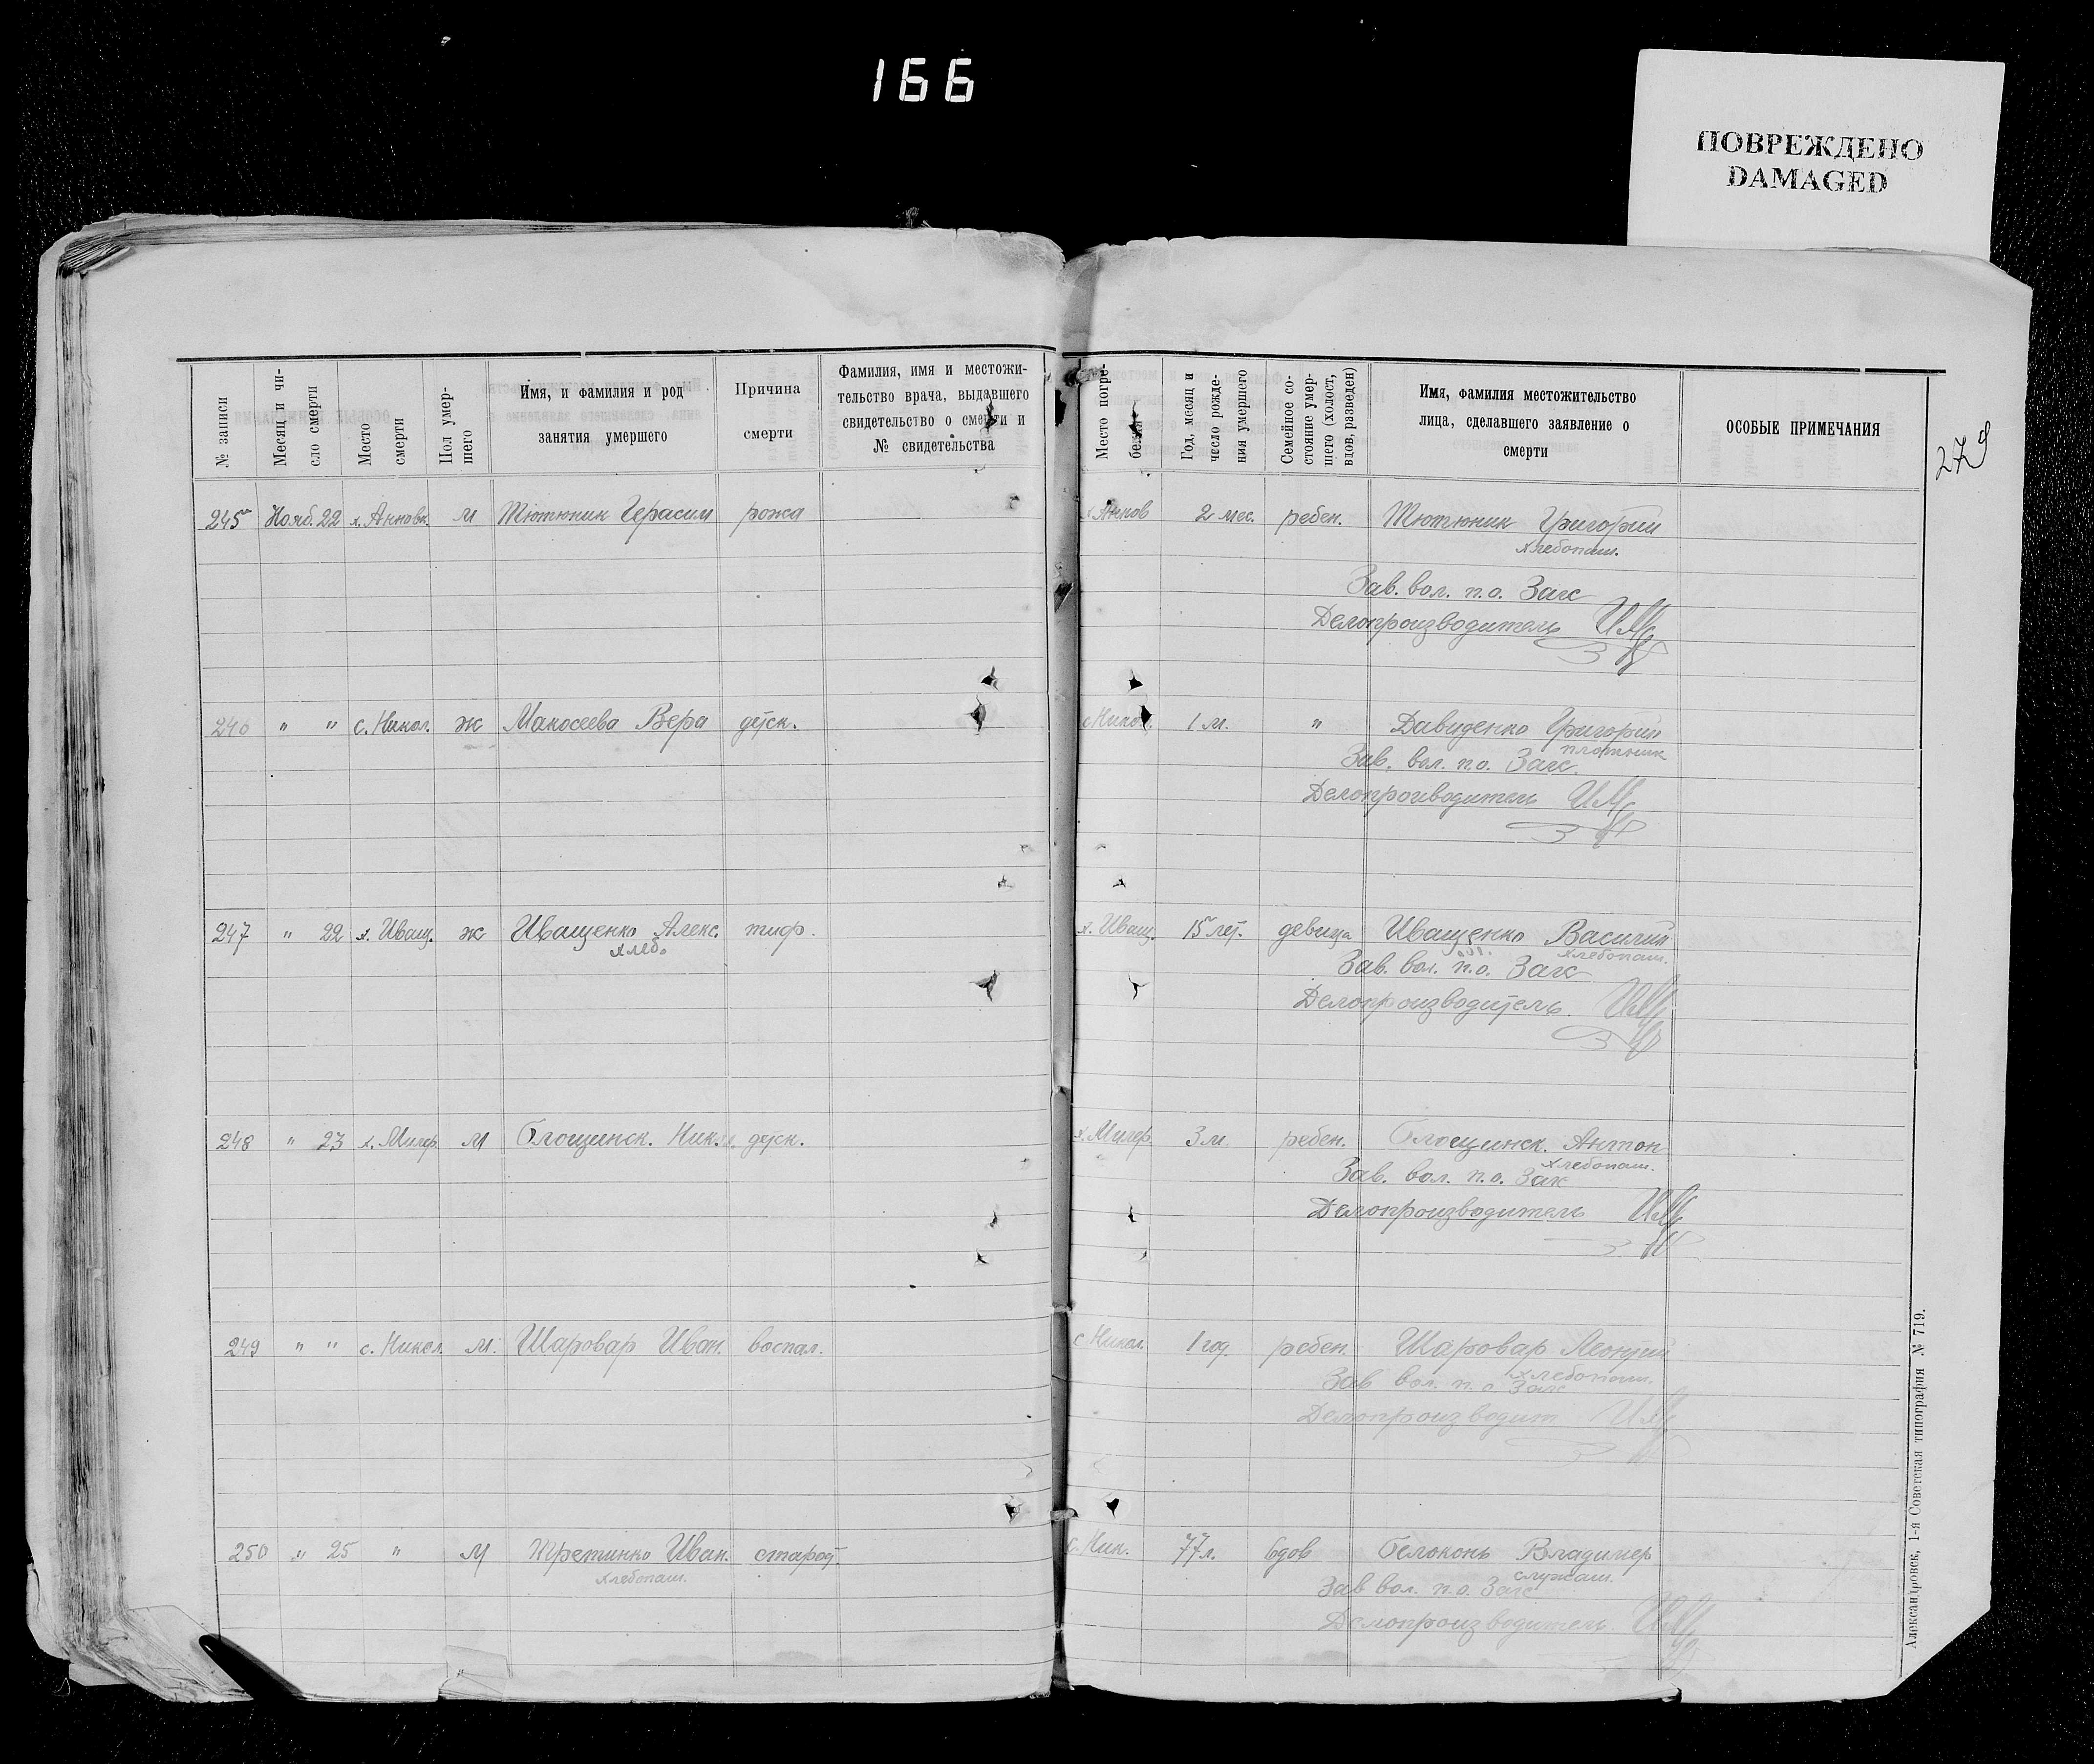 166
ПОВРЕЖДЕНО
DAMAGED
278
№ записи
Месяц и чи-
сло смерти
Место
смерти
Пол умер-
шего
Имя, и фамилия и род
занятия умершего
Причина
смерти
Фамилия, имя и местожи-
тельство врача, выдавшего
свидетельство о смерти и
№ свидетельства
Место погре-
бения
Год, месяц и
число рожде-
ния умершего
Семейное со-
стояние умер-
шего (холост,
вдов, разведен)
Имя, фамилия местожительство
лица, сделавшего заявление о
смерти
ОСОБЫЕ ПРИМЕЧАНИЯ
245 Нояб. 22 х. Анновк. м Тютюник Герасим рожа х Аннов 2 мес. ребен. Тютюник Григорий
хлебопаш.
Зав. вол. п.о. Загс
Делопроизводитель
246 " " с. Никол. ж Макосеева Вера детск. с Никол. 1 м. " Давиденко Григорий
плотник
Зав. вол. п.о. Загс.
Делопроизводитель
247 " 22 х. Иващ. ж Иващенко Алекс. тиф. х. Иващ. 15 лет. девица Иващенко Василий
хлеб. хлебопаш.
Зав. вол. п.о. Загс
Делопроизводитель.
248 " 23 х. Милер. м Блощинск. Ник. детск. х. Милер. 3 м. ребен. Блощинск. Антон
хлебопаш.
Зав. вол. п.о. Загс
Делопроизводитель
249 " " с. Никол. м. Шаровар Иван. воспал. с Никол. 1 год ребен. Шаровар Леонтий
хлебопаш.
Зав вол. п.о. Загс
Делопроизводит
250 " 25 " м Иван. старост с. Ник. 77 л. вдов Белоконь Владимер
хлебопаш. служащ.
Зав вол. п.о. Загс
Делопроизводитель.
Александровск, 1-я Советская типография № 719.